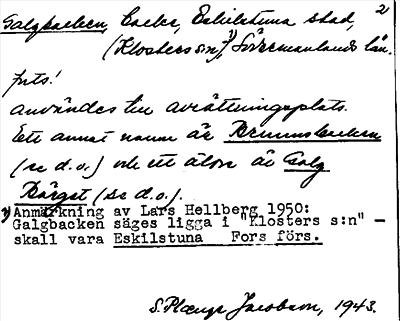 2
Galgbacken, backe, Eskilstuna stad,
(Klosters sn)¹), Södermanlands län.
förts!
användes till avrättningsplats.
Ett annat namn är Brunnsbacken
(se d.o.) och ett äldre är Galg
Bärget (se d.o.).
¹) Anmärkning av Lars Hellberg 1950:
Galgbacken säges ligga i "Klosters s:n" –
skall vara Eskilstuna Fors förs.
S. Jacobson, 1943.